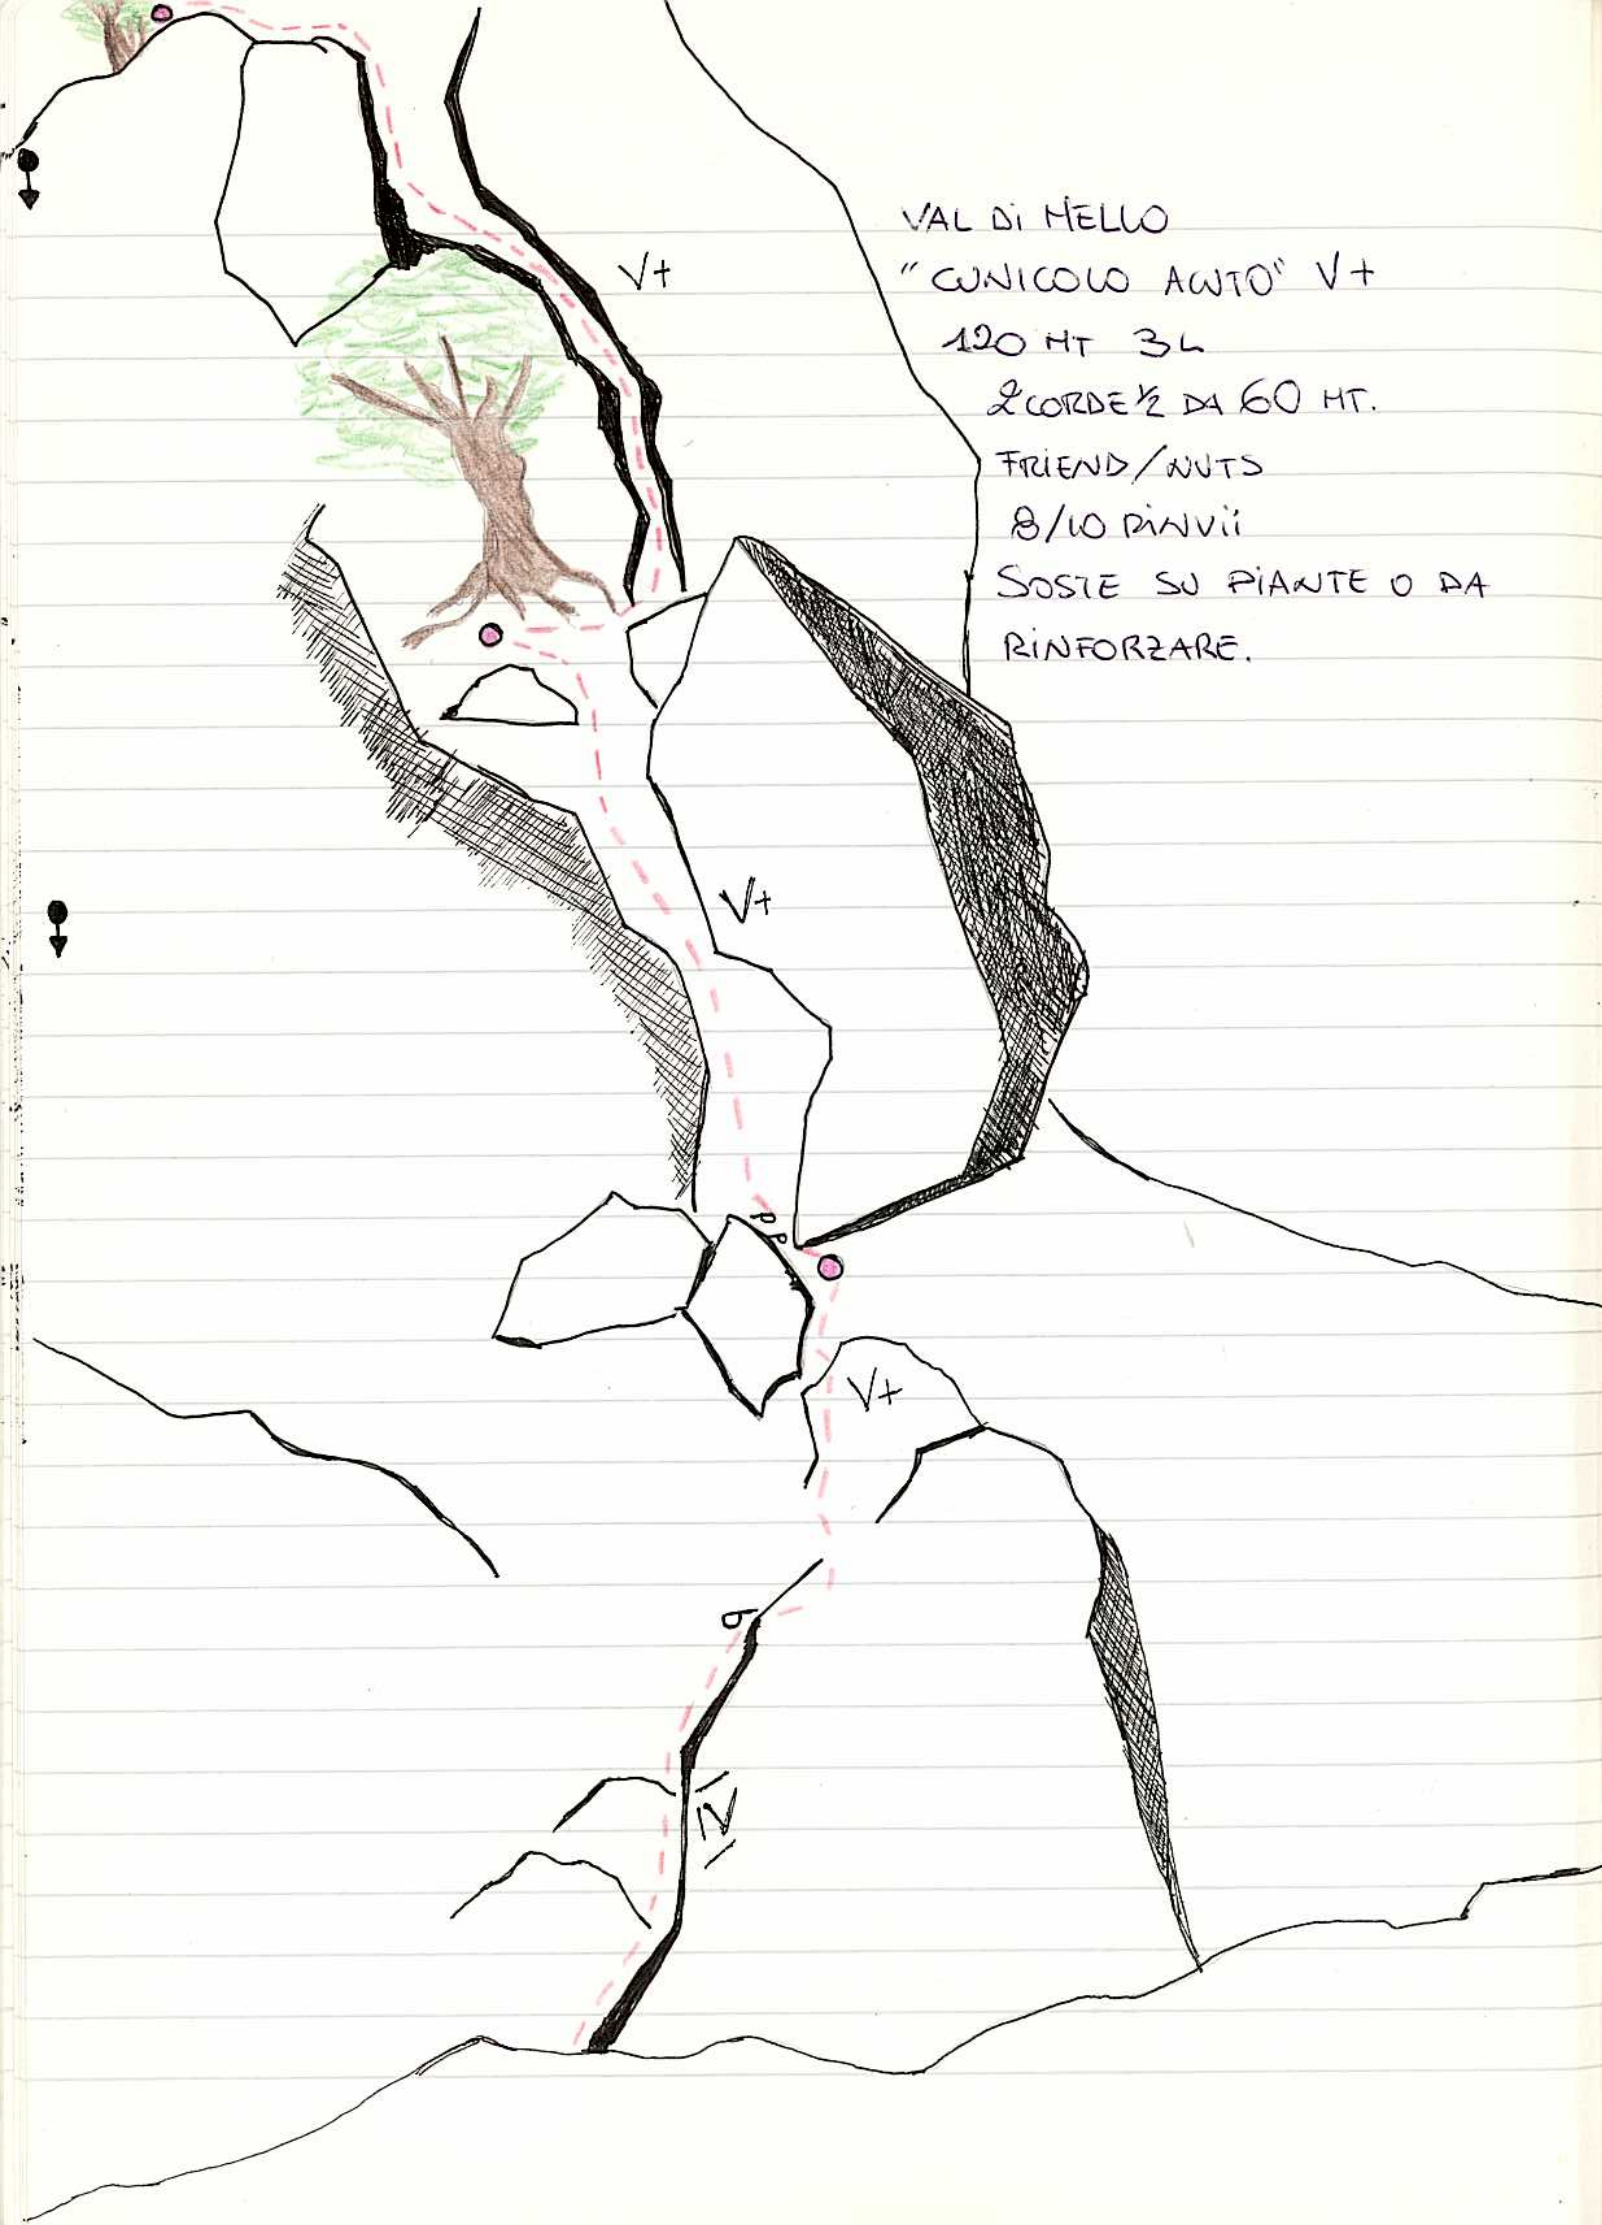 VAL Di MELLO
"CUNICOLO ACUTO" V+
120 MT 3L
2 CORDE ½ DA 60 MT.
FRiEND/NUTS
8/10 RiNVii
SOSTE SU PiANTE O DA
RiNFORZARE.
V+
V+
P
P
V+
b
IV